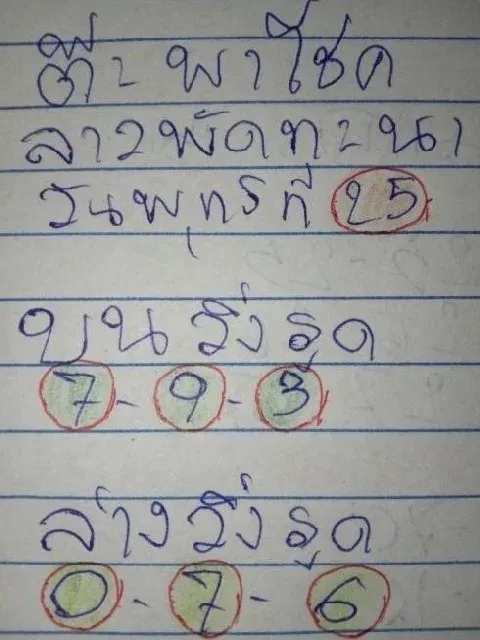 ต๊ะ พาโชค
ลาวพัดทะนา
วันพุทธที่ 25
บน วิ่ง รูด
7 - 9 - 3
ล่าง วิ่ง รูด
0 - 7 - 6